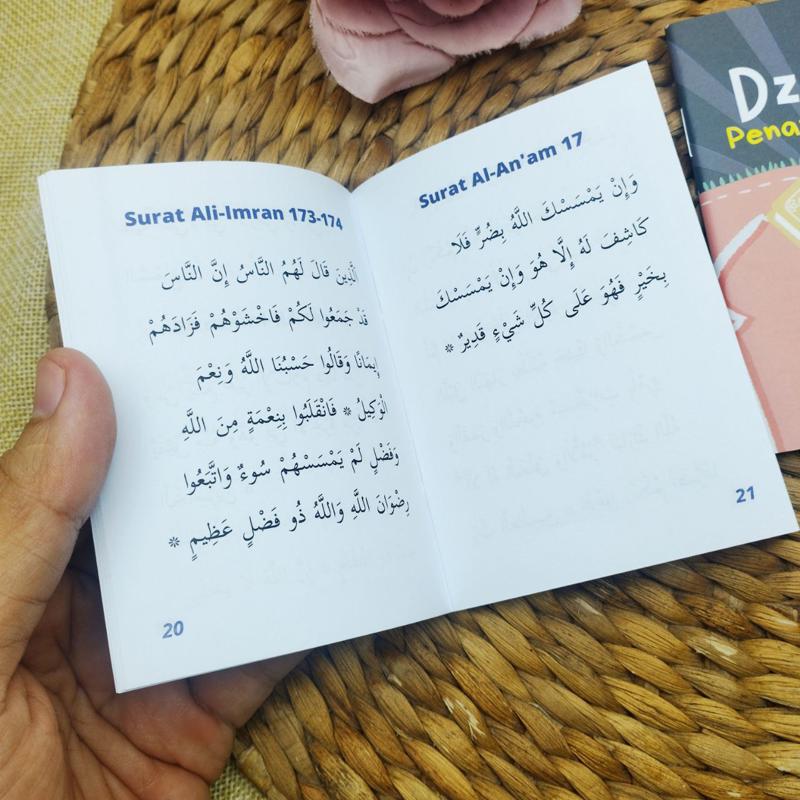 Surat Ali-Imran 173-174
الَّذِينَ قَالَ لَهُمُ النَّاسُ إِنَّ النَّاسَ
قَدْ جَمَعُوا لَكُمْ فَاخْشَوْهُمْ فَزَادَهُمْ
إِيمَانًا وَقَالُوا حَسْبُنَا اللَّهُ وَنِعْمَ
الْوَكِيلُ * فَانْقَلَبُوا بِنِعْمَةٍ مِنَ اللَّهِ
وَفَضْلٍ لَمْ يَمْسَسْهُمْ سُوءٌ وَاتَّبَعُوا
رِضْوَانَ اللَّهِ وَاللَّهُ ذُو فَضْلٍ عَظِيمٍ *
20
Surat Al-An'am 17
وَإِنْ يَمْسَسْكَ اللَّهُ بِضُرٍّ فَلَا
كَاشِفَ لَهُ إِلَّا هُوَ وَإِنْ يَمْسَسْكَ
بِخَيْرٍ فَهُوَ عَلَى كُلِّ شَيْءٍ قَدِيرٌ *
21